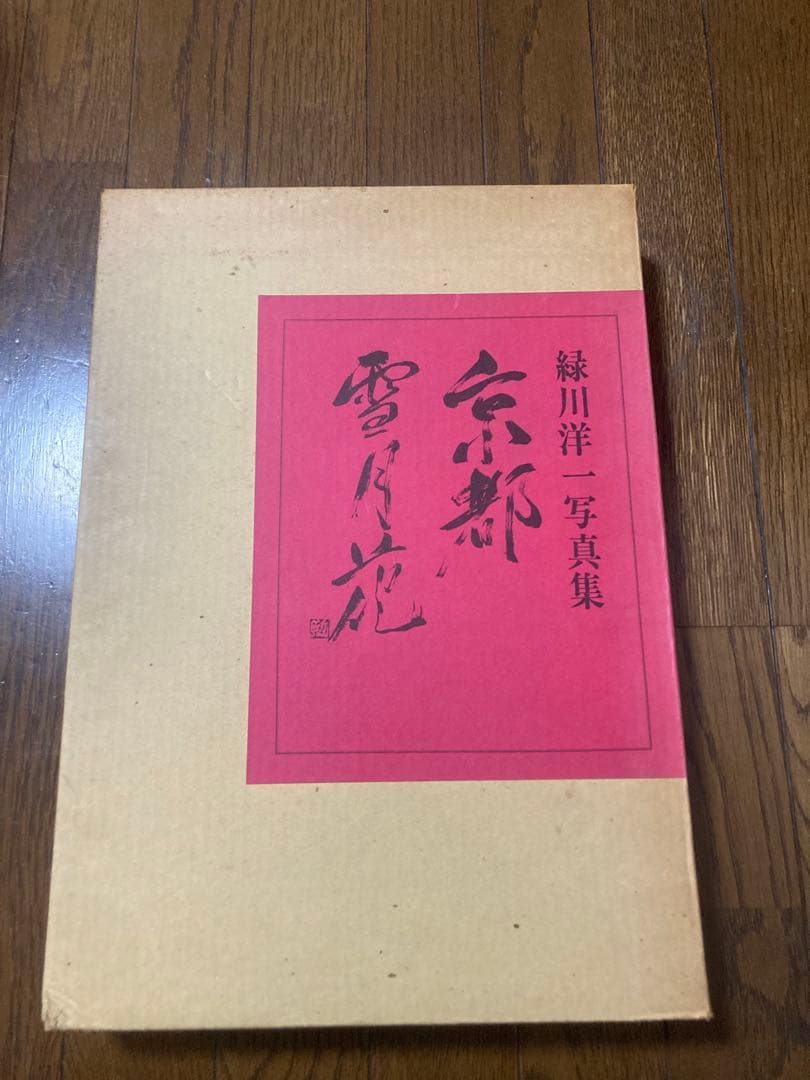 緑川洋一写真集
京都
雪月花